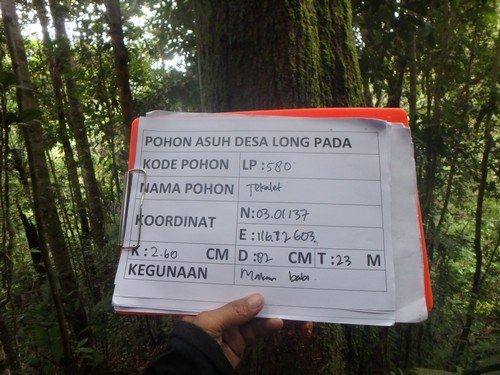 POHON ASUH DESA LONG PADA
KODE POHON LP : 580
NAMA POHON Tekalet
KOORDINAT N : 03.01137
E : 116.72603
K : 2.60 CM D : 82 CM T : 23 M
KEGUNAAN Makan babi.